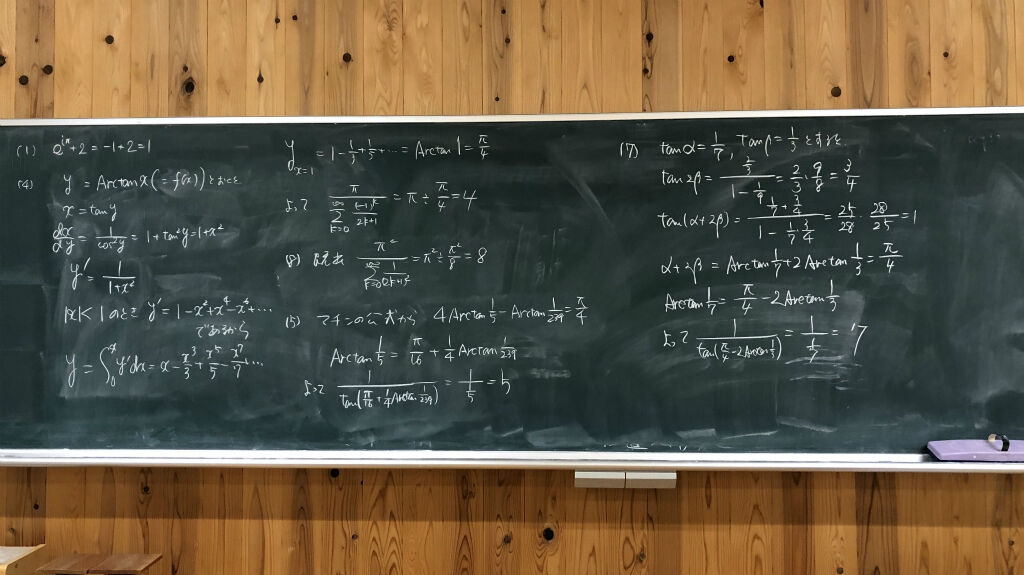 (1) e^{iπ}+2=-1+2=1
(4) y = Arctan x (= f(x)) とおくと
x = tan y
dx/dy = 1/cos²y = 1+tan²y = 1+x²
y' = 1/(1+x²)
|x|<1 のとき y' = 1-x²+x⁴-x⁶+…
であるから
y = ∫₀ˣ y'dx = x - x³/3 + x⁵/5 - x⁷/7 …
y_{x=1} = 1 - 1/3 + 1/5 + … = Arctan 1 = π/4
よって π / Σ_{k=0}^{∞} (-1)^k/(2k+1) = π ÷ π/4 = 4
(8) π² / Σ_{k=0}^{∞} 1/(2k+1)² = π² ÷ π²/8 = 8
(5) マチンの公式から 4Arctan 1/5 - Arctan 1/239 = π/4
Arctan 1/5 = π/16 + 1/4 Arctan 1/239
よって 1/tan(π/16 + 1/4 Arctan 1/239) = 1/(1/5) = 5
(7) tanα = 1/7, tanβ = 1/3 とおくと
tan2β = (2/3)/(1 - 1/9) = 2/3 · 9/8 = 3/4
tan(α+2β) = (1/7 + 3/4)/(1 - 1/7 · 3/4) = 25/28 · 28/25 = 1
α+2β = Arctan 1/7 + 2 Arctan 1/3 = π/4
Arctan 1/7 = π/4 - 2Arctan 1/3
よって 1/tan(π/4 - 2Arctan 1/3) = 1/(1/7) = 7